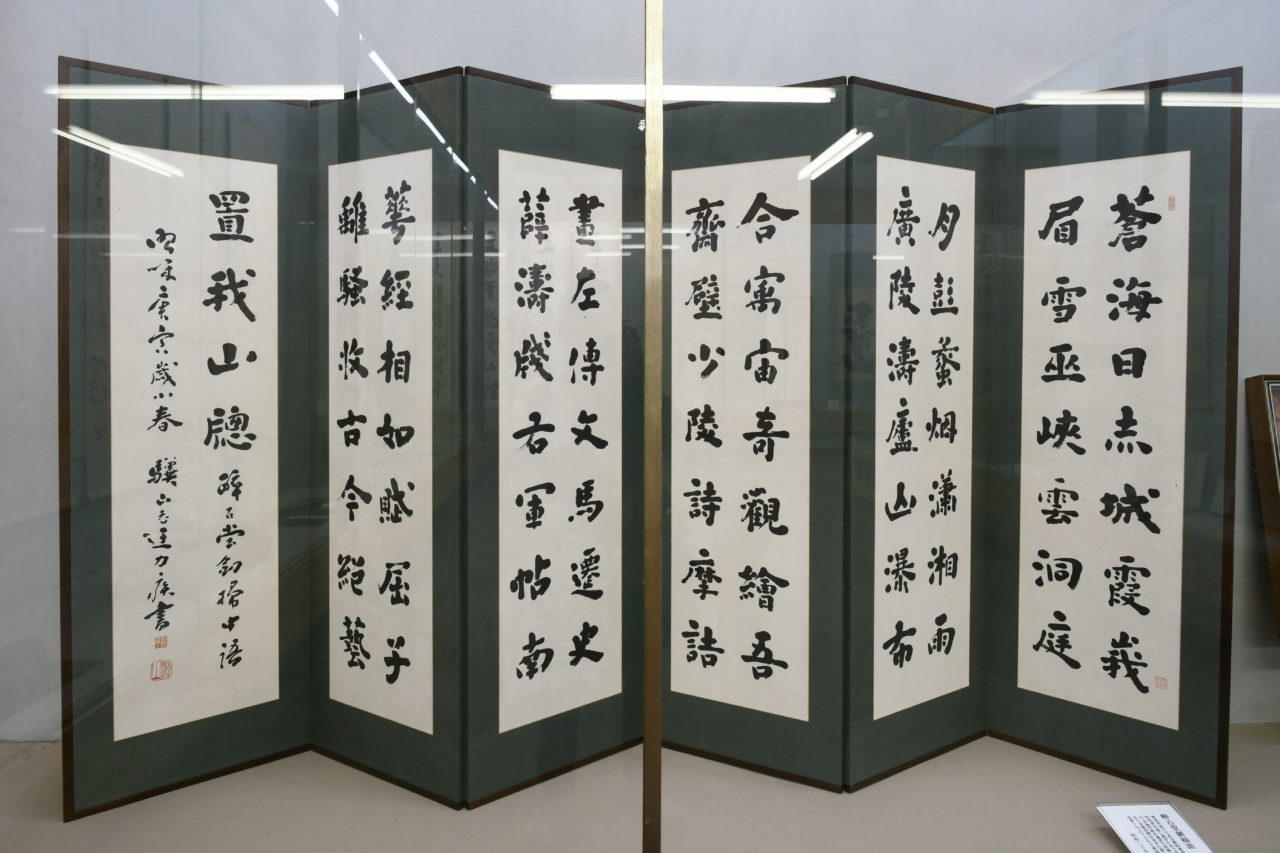 蒼海日赤城霞峩
眉雪巫峽雲洞庭
月彭蠡烟瀟湘雨
廣陵濤廬山瀑布
合寓宙奇觀繪吾
齋壁少陵詩摩詰
畫左傳文馬遷史
薛濤牋右軍帖南
華經相如賦屈子
離騷收古今絕藝
置我山牕 醉古堂劍掃中語
庚寅歲小春 驥山老迂力疾書